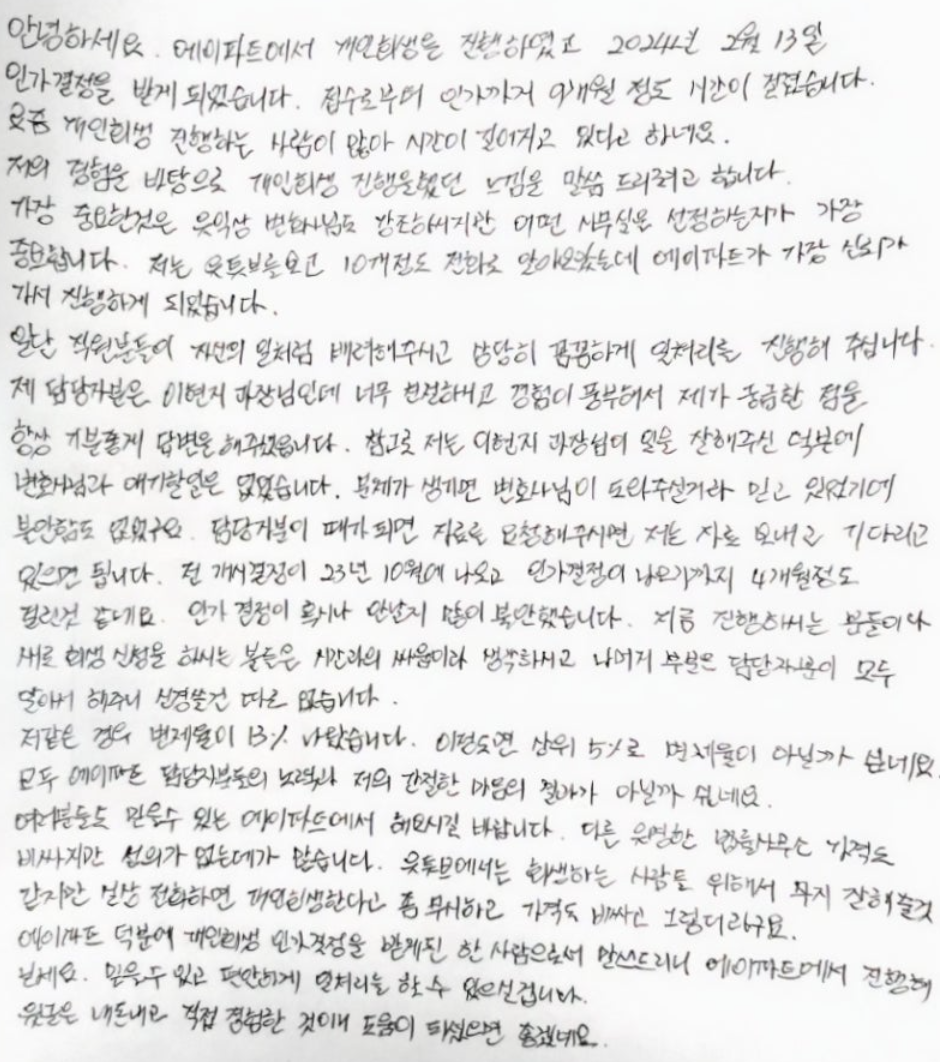 안녕하세요. 에이파트에서 개인회생을 진행하였고 2024년 2월 13일
인가결정을 받게 되었습니다. 접수로부터 인가까지 9개월 정도 시간이 걸렸습니다.
요즘 개인회생 진행하는 사람이 많아 시간이 길어지고 있다고 하네요.
저의 경험을 바탕으로 개인회생 진행을했던 느낌을 말씀 드리려고 합니다.
가장 중요한것은 윤익상 변호사님도 강조하시지만 어떤 사무실을 선정하는지가 가장
중요합니다. 저는 유튜브를보고 10개정도 전화로 알아보았는데 에이파트가 가장 신뢰가
가서 진행하게 되었습니다.
일단 직원분들이 자신의 일처럼 배려해주시고 상당히 꼼꼼하게 일처리를 진행해 주십니다.
제 담당자분은 이현지 과장님인데 너무 친절하시고 경험이 풍부해서 제가 궁금한 점을
항상 기분좋게 답변을 해주셨습니다. 참고로 저는 이현지 과장님이 일을 잘해주신 덕분에
변호사님과 얘기할일은 없었습니다. 문제가 생기면 변호사님이 도와주실거라 믿고 있었기에
불안함도 없었구요. 담당자분이 때가 되면 자료를 요청해주시면 저는 자료 보내고 기다리고
있으면 됩니다. 전 개시결정이 23년 10월에 나오고 인가결정이 나오기까지 4개월정도
걸린것 같네요. 인가 결정이 혹시나 안날지 많이 불안했습니다. 지금 진행하시는 분들이나
새로 회생 신청을 하시는 분들은 시간과의 싸움이라 생각하시고 나머지 부분은 담당자분이 모두
알아서 해주니 신경쓸건 따로 없습니다.
저같은 경우 변제율이 13% 나왔습니다. 이정도면 상위 5%로 변제율이 아닐까 싶네요.
모두 에이파트 담당자분들의 노력과 저의 간절한 마음의 결과가 아닐까 싶네요.
여러분들도 믿을수 있는 에이파트에서 해보시길 바랍니다. 다른 유명한 법률사무소 가격도
비싸지만 성의가 없는데가 많습니다. 유튜브에서는 회생하는 사람들 위해서 무지 잘해줄것
같지만 실상 전화하면 개인회생한다고 좀 무시하고 가격도 비싸고 그렇더라구요.
에이파트 덕분에 개인회생 인가결정을 받게된 한 사람으로서 말쓰드리니 에이파트에서 진행해
보세요. 믿을수 있고 편안하게 일처리를 할수 있으실겁니다.
윗글은 내돈내고 직접 경험한 것이니 도움이 되셨으면 좋겠네요.